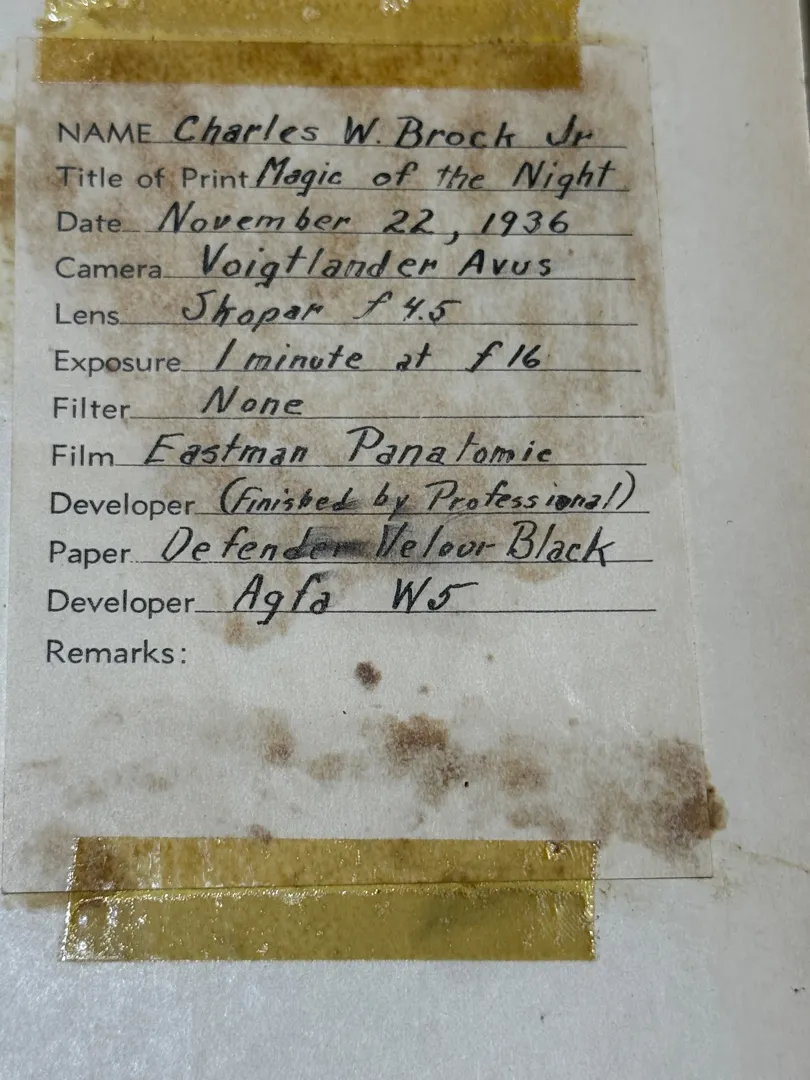 NAME Charles W. Brock Jr
Title of Print Magic of the Night
Date November 22, 1936
Camera Voigtlander Avus
Lens Skopar f 4.5
Exposure 1 minute at f 16
Filter None
Film Eastman Panatomic
Developer (Finished by Professional)
Paper Defender Velour Black
Developer Agfa W5
Remarks: